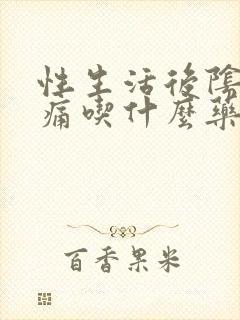 性生活後陰
痛喫什麼藥
百香果米